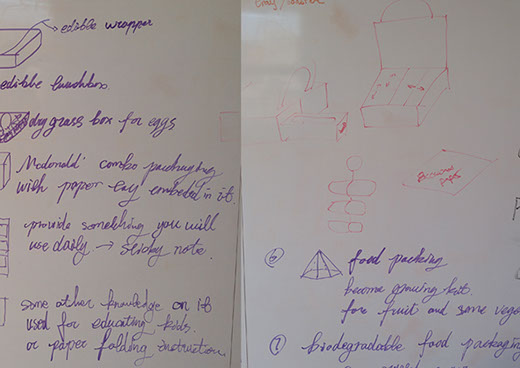 edible wrapper
edible lunchbox.
dry grass box for eggs
Mcdonald' combo packaging
with paper embeded in it.
provide something you will
use daily → sticky note.
some other knowledge on it
used for educating kids.
or paper folding instruction.
6
food packing
become growing kit.
for fruit and some vege
7
biodegradable food packaging